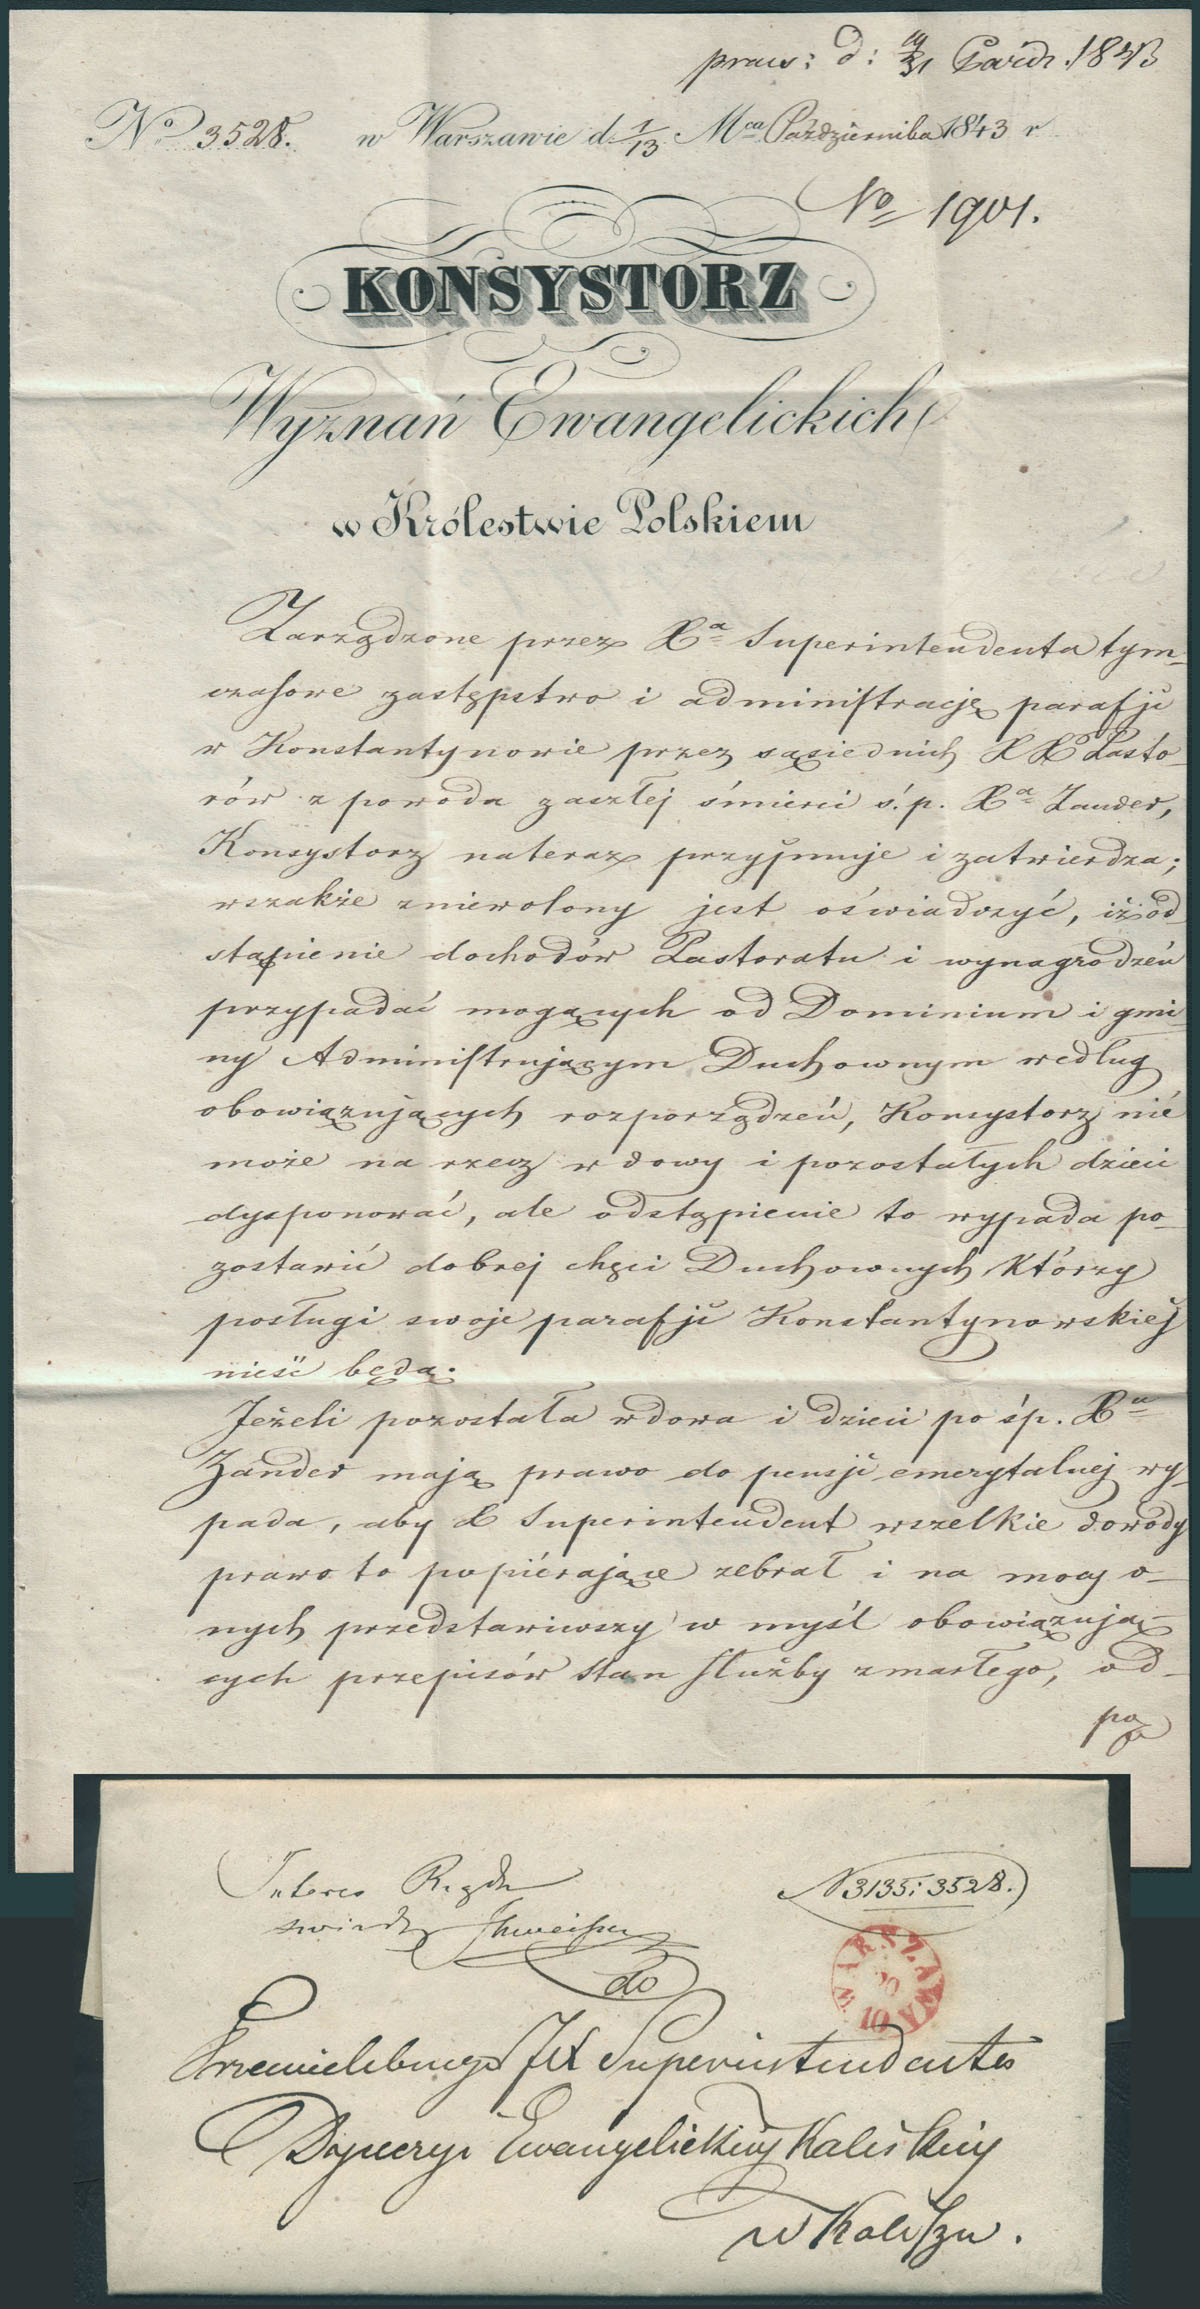 praes: d: 19/31 Paźdz. 1843
No 3528. w Warszawie d. 1/13 Mca Października 1843 r
No 1901.
KONSYSTORZ
Wyznań Ewangelickich
w Królestwie Polskiem
Zarządzone przez Xa Superintendenta tym-
czasowe zastępstwo i administrację parafji
w Konstantynowie przez sąsiednich XX Pasto-
rów z powodu zaszłej śmierci ś.p. Xa Zander,
Konsystorz nateraz przyjmuje i zatwierdza;
wszakże zniewolony jest oświadczyć, iż od-
stąpienie dochodów Pastoratu i wynagrodzeń
przypadać mogących od Dominium i gmi-
ny Administrującym Duchownym według
obowiązujących rozporządzeń, Konsystorz nié
może na rzecz wdowy i pozostałych dzieci
dysponować, ale odstąpienie to wypada po-
zostawić dobrej chęci Duchownych którzy
posługi swoje parafji Konstantynowskiéj
nieść będą.
Jeżeli pozostała wdowa i dzieci po śp. Xu
Zander mają prawo do pensji emerytalnej wy-
pada, aby X Superintendent wszelkie dowody
prawo to popiérające zebrał i na mocy o-
nych przedstawiwszy w myśl obowiązują-
cych przepisów stan służby zmarłego, od-
po
Interes Rządu
N 3135 i 3528.
WARSZAWA
20
10
do
JX Superintendenta
Dyecezyi Ewangelickiey Kaliskiey
w Kaliszu.